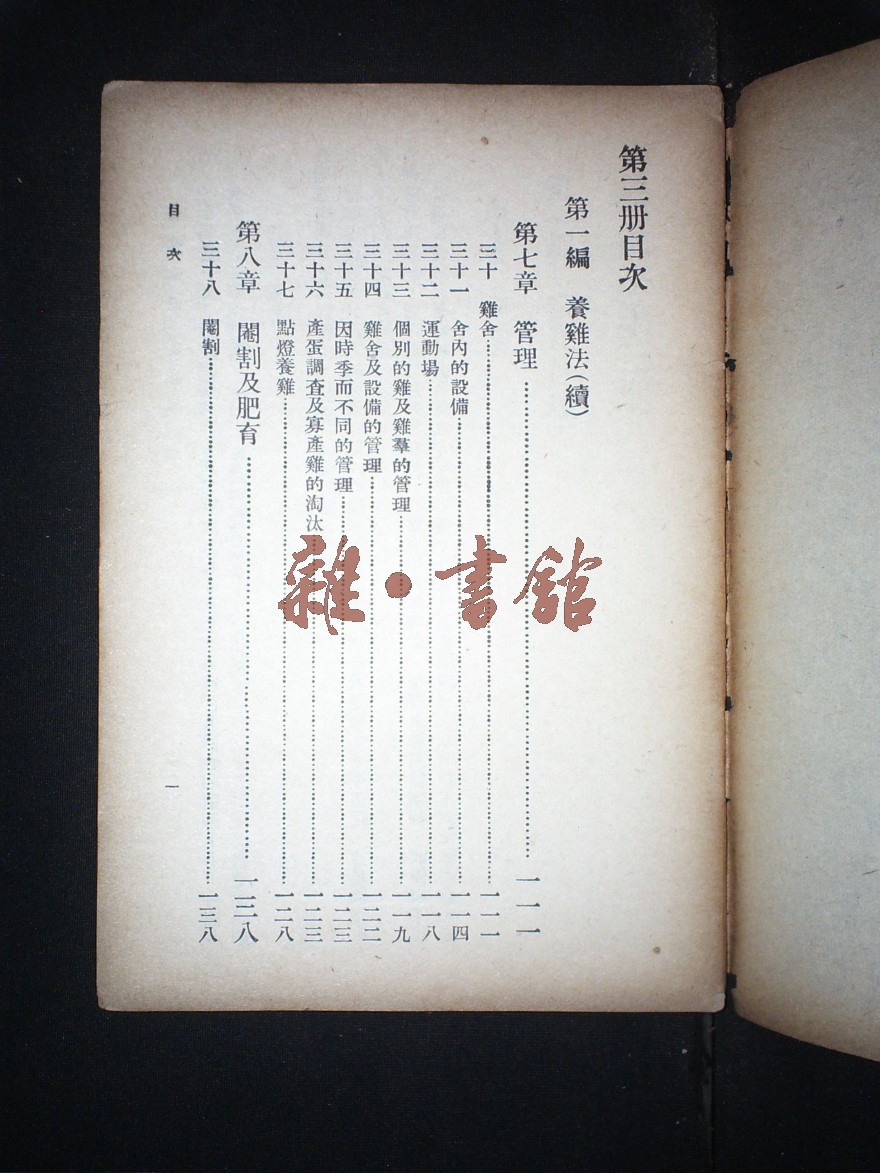 第三册目次
第一編 養雞法(續)
第七章 管理……一一一
三十 雞舍……一一一
三十一 舍內的設備……一一四
三十二 運動場……一一八
三十三 個別的雞及雞羣的管理……一一九
三十四 雞舍及設備的管理……一二二
三十五 因時季而不同的管理……一二三
三十六 產蛋調查及寡產雞的淘汰……一二三
三十七 點燈養雞……一二八
第八章 閹割及肥育……一三八
三十八 閹割……一三八
目次
一
雜·書館